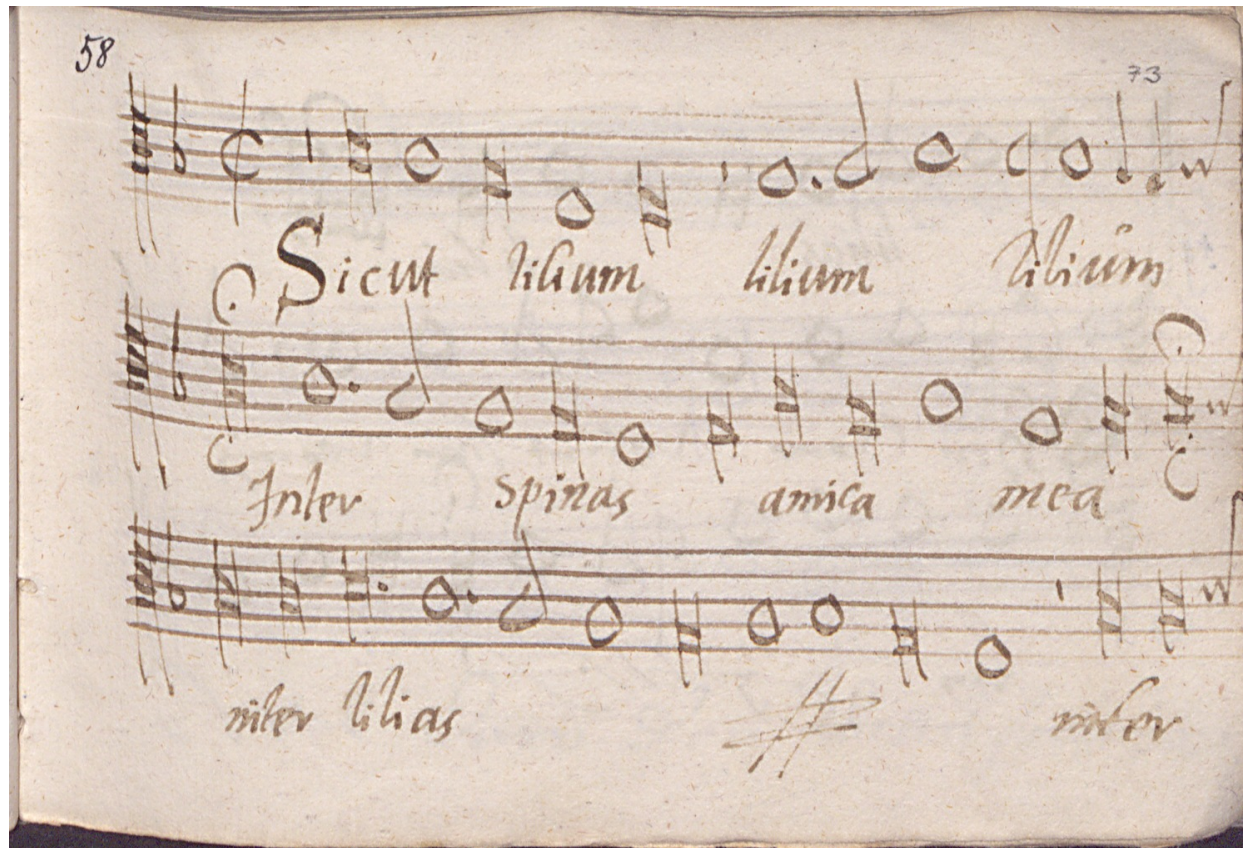 58
73
Sicut lilium lilium lilium
Inter spinas amica mea
inter lilias inter